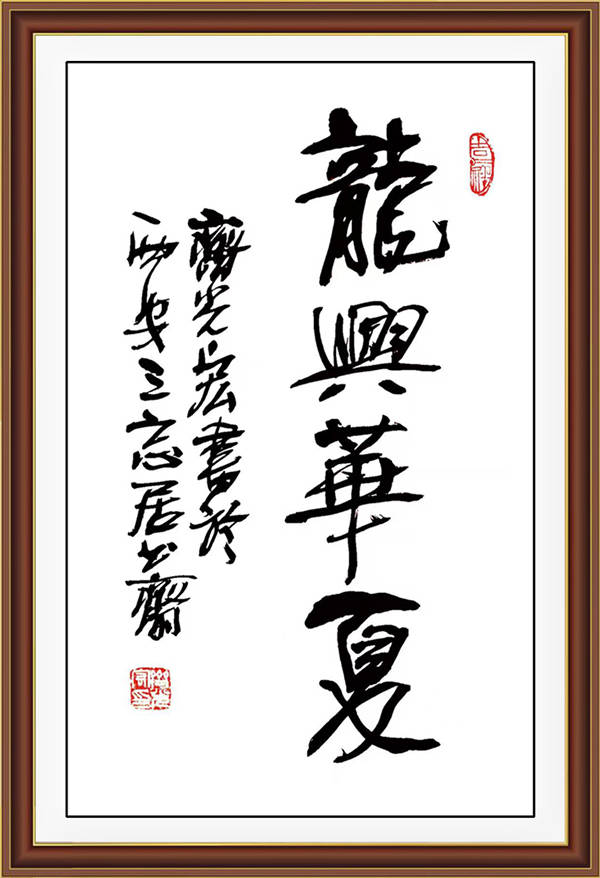 龍興華夏
齊光宏書於
西安三忘居書齋
吉祥